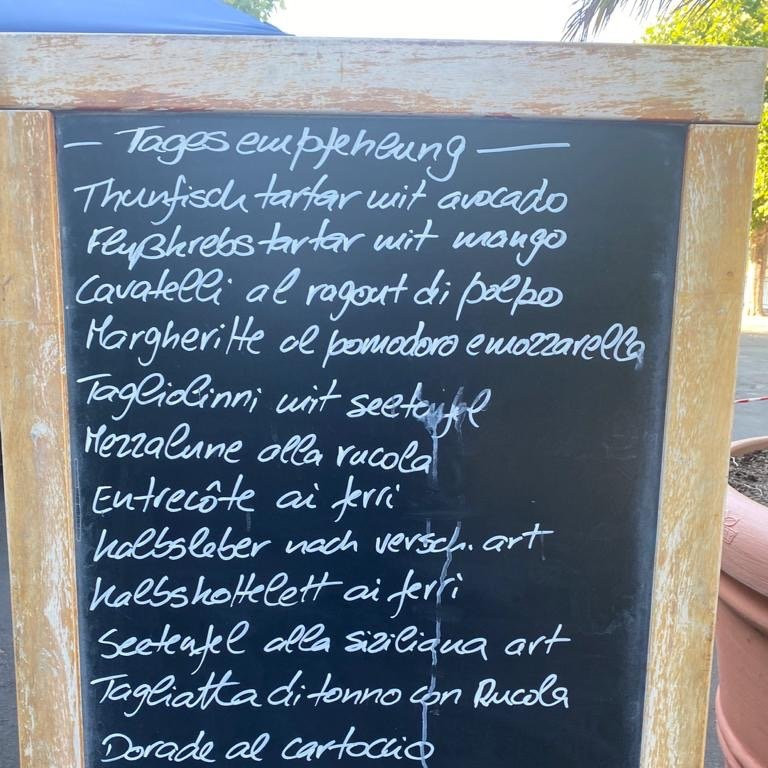 — Tagesempfehlung —
Thunfischtartar mit avocado
Flußkrebstartar mit mango
Cavatelli al ragout di polpo
Margheritte al pomodoro e mozzarella
Tagliolinni mit seeteufel
Mezzalune alla rucola
Entrecôte ai ferri
kalbsleber nach versch. art
kalbskottelett ai ferri
Seeteufel alla siziliana art
Tagliatta di tonno con Rucola
Dorade al cartoccio